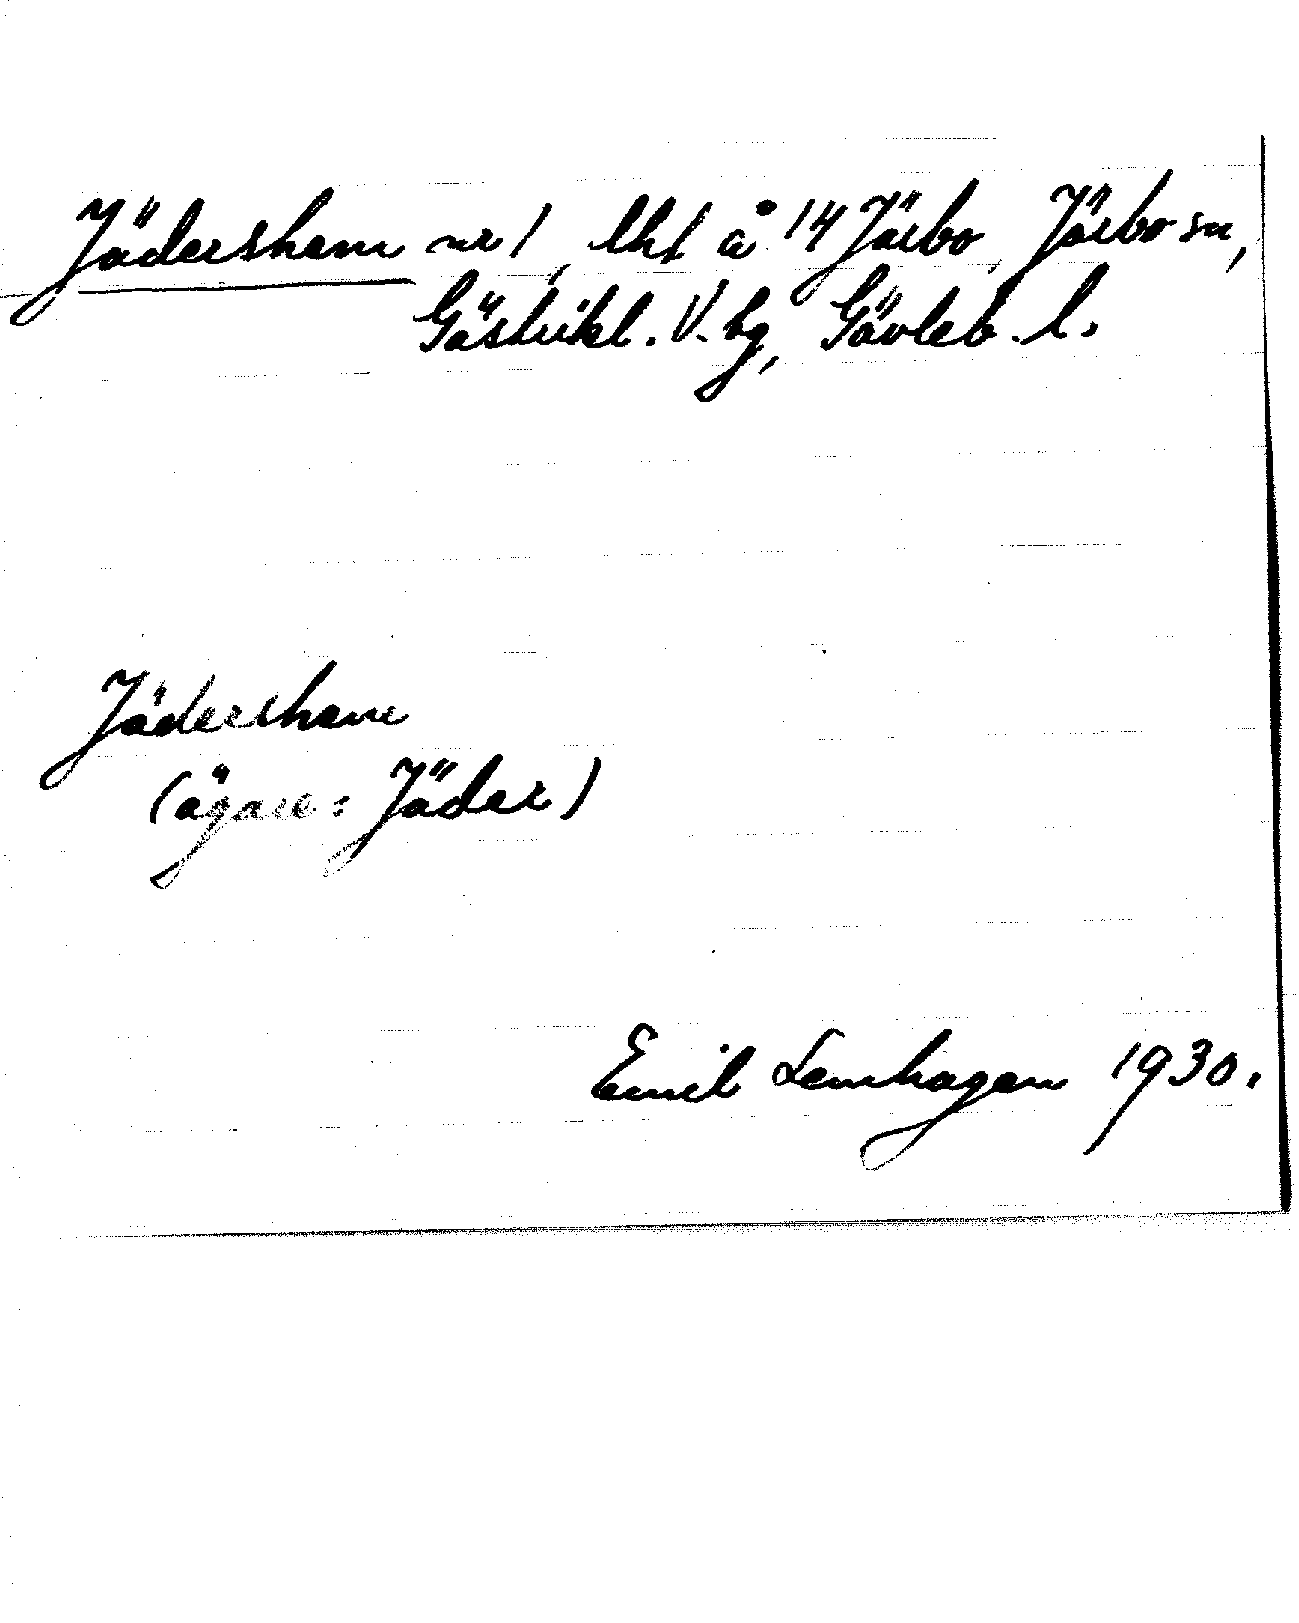 Jädershem nr 1, lht å 14 Järbo, Järbo sn,
Gästrikl. V. hg, Gävleb. l.
Jädershem
(ägare: Jäder)
Emil Lemhagen 1930.